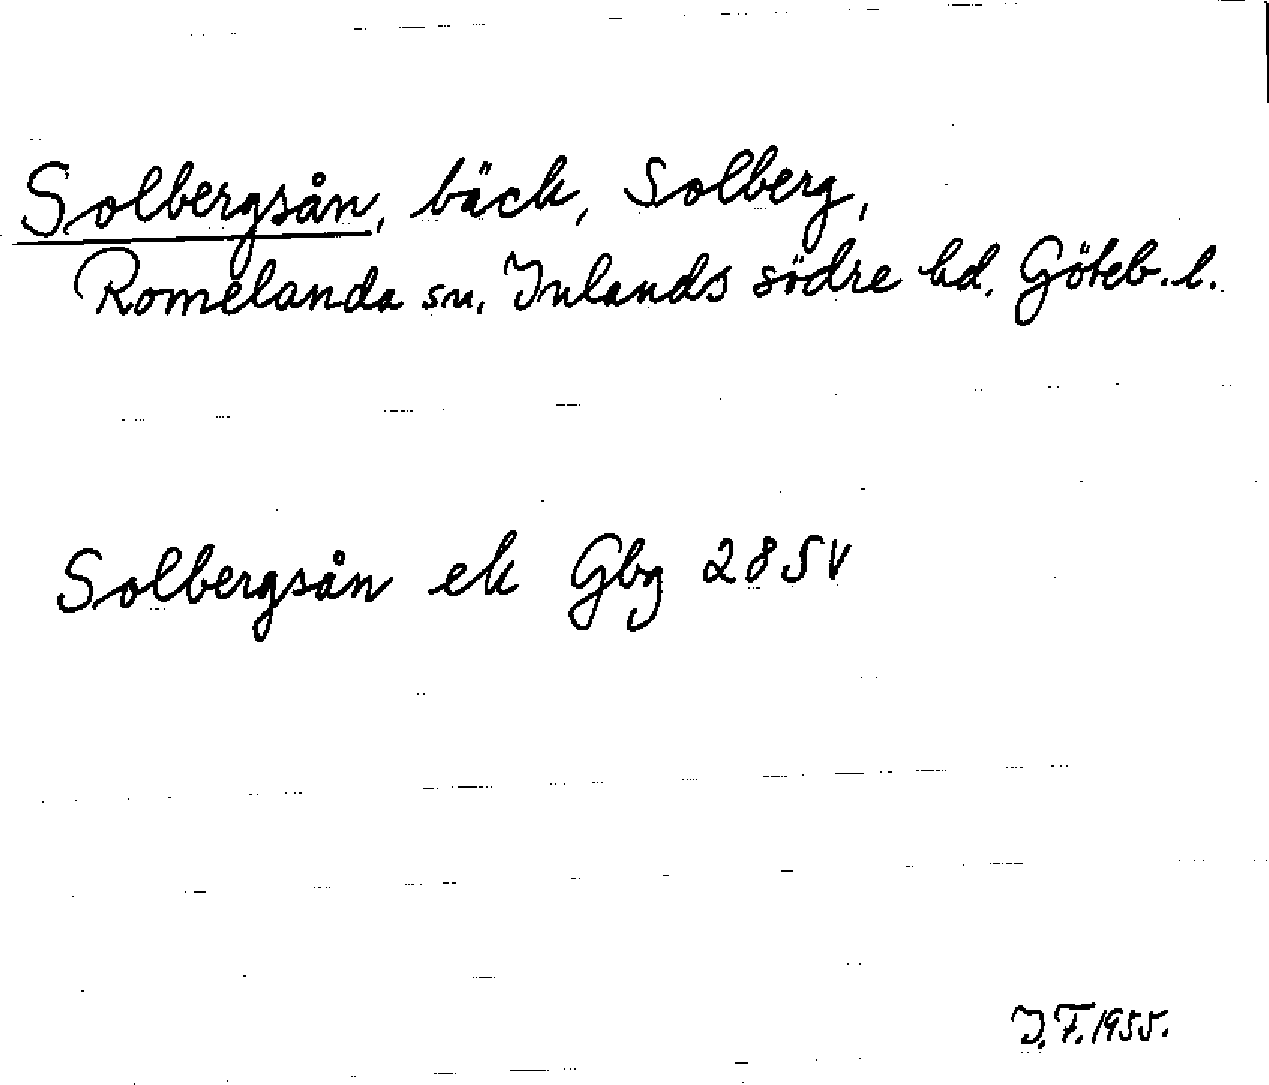 Solbergsån, bäck, Solberg,
Romelanda sn. Inlands södre hd. Göteb. l.
Solbergsån ek Gbg 285V
I.F. 1955.